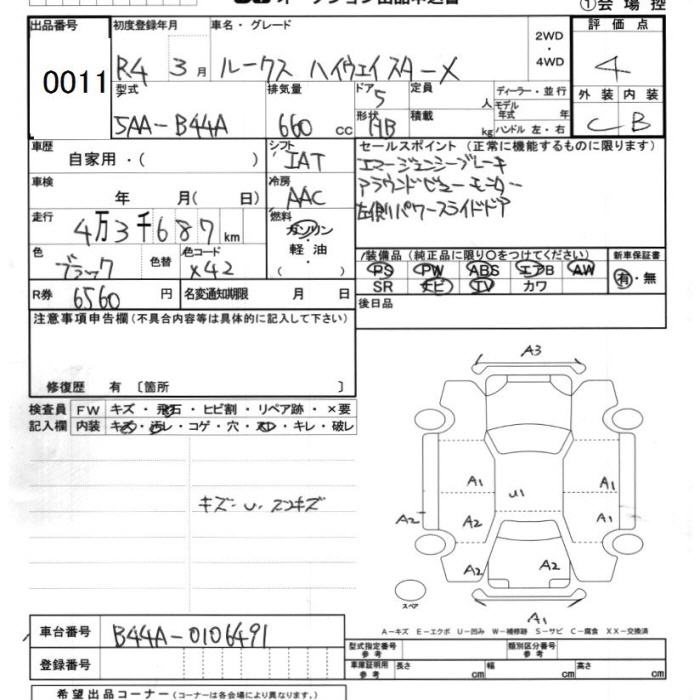 ①会場控
出品番号 初度登録年月 車名・グレード 2WD・4WD 評価点
0011 R4 3月 ルークス ハイウェイスターX 4
型式 排気量 ドア 5 定員 人 ディーラー・並行 外装 内装
5AA-B44A 660cc 形状 HB 積載 kg モデル年式 年 ハンドル 左・右 C B
車歴 自家用・( ) シフト IAT セールスポイント (正常に機能するものに限ります)
エマージェンシーブレーキ
車検 年 月( 日) 冷房 AAC アラウンドビューモニター
左側パワースライドドア
走行 4万3千687km 燃料 ガソリン・軽油・( )
色 ブラック 色替 色コード X42 装備品 (純正品に限り○をつけてください) 新車保証書
PS PW ABS エアB AW 有・無
SR ナビ TV カワ
R券 6560円 名変通知期限 月 日 後日品
注意事項申告欄(不具合内容等は具体的に記入して下さい)
修復歴 有 〔箇所 〕
検査員 FW キズ・飛石・ヒビ割・リペア跡・×要
記入欄 内装 キズ・汚レ・コゲ・穴・スレ・キレ・破レ
キズ・U・スリキズ
A3
A1 A1
U1
A2 A2 A1 A1
A2 A2 A2
スペア
A1
A-キズ E-エクボ U-凹み W-補修跡 S-サビ C-腐食 XX-交換済
車台番号 B44A-0106491
型式指定番号 参考 類別区分番号 参考
登録番号 車庫証明用 参考 長さ cm 幅 cm 高さ cm
希望出品コーナー (コーナーは各会場により異なります。)